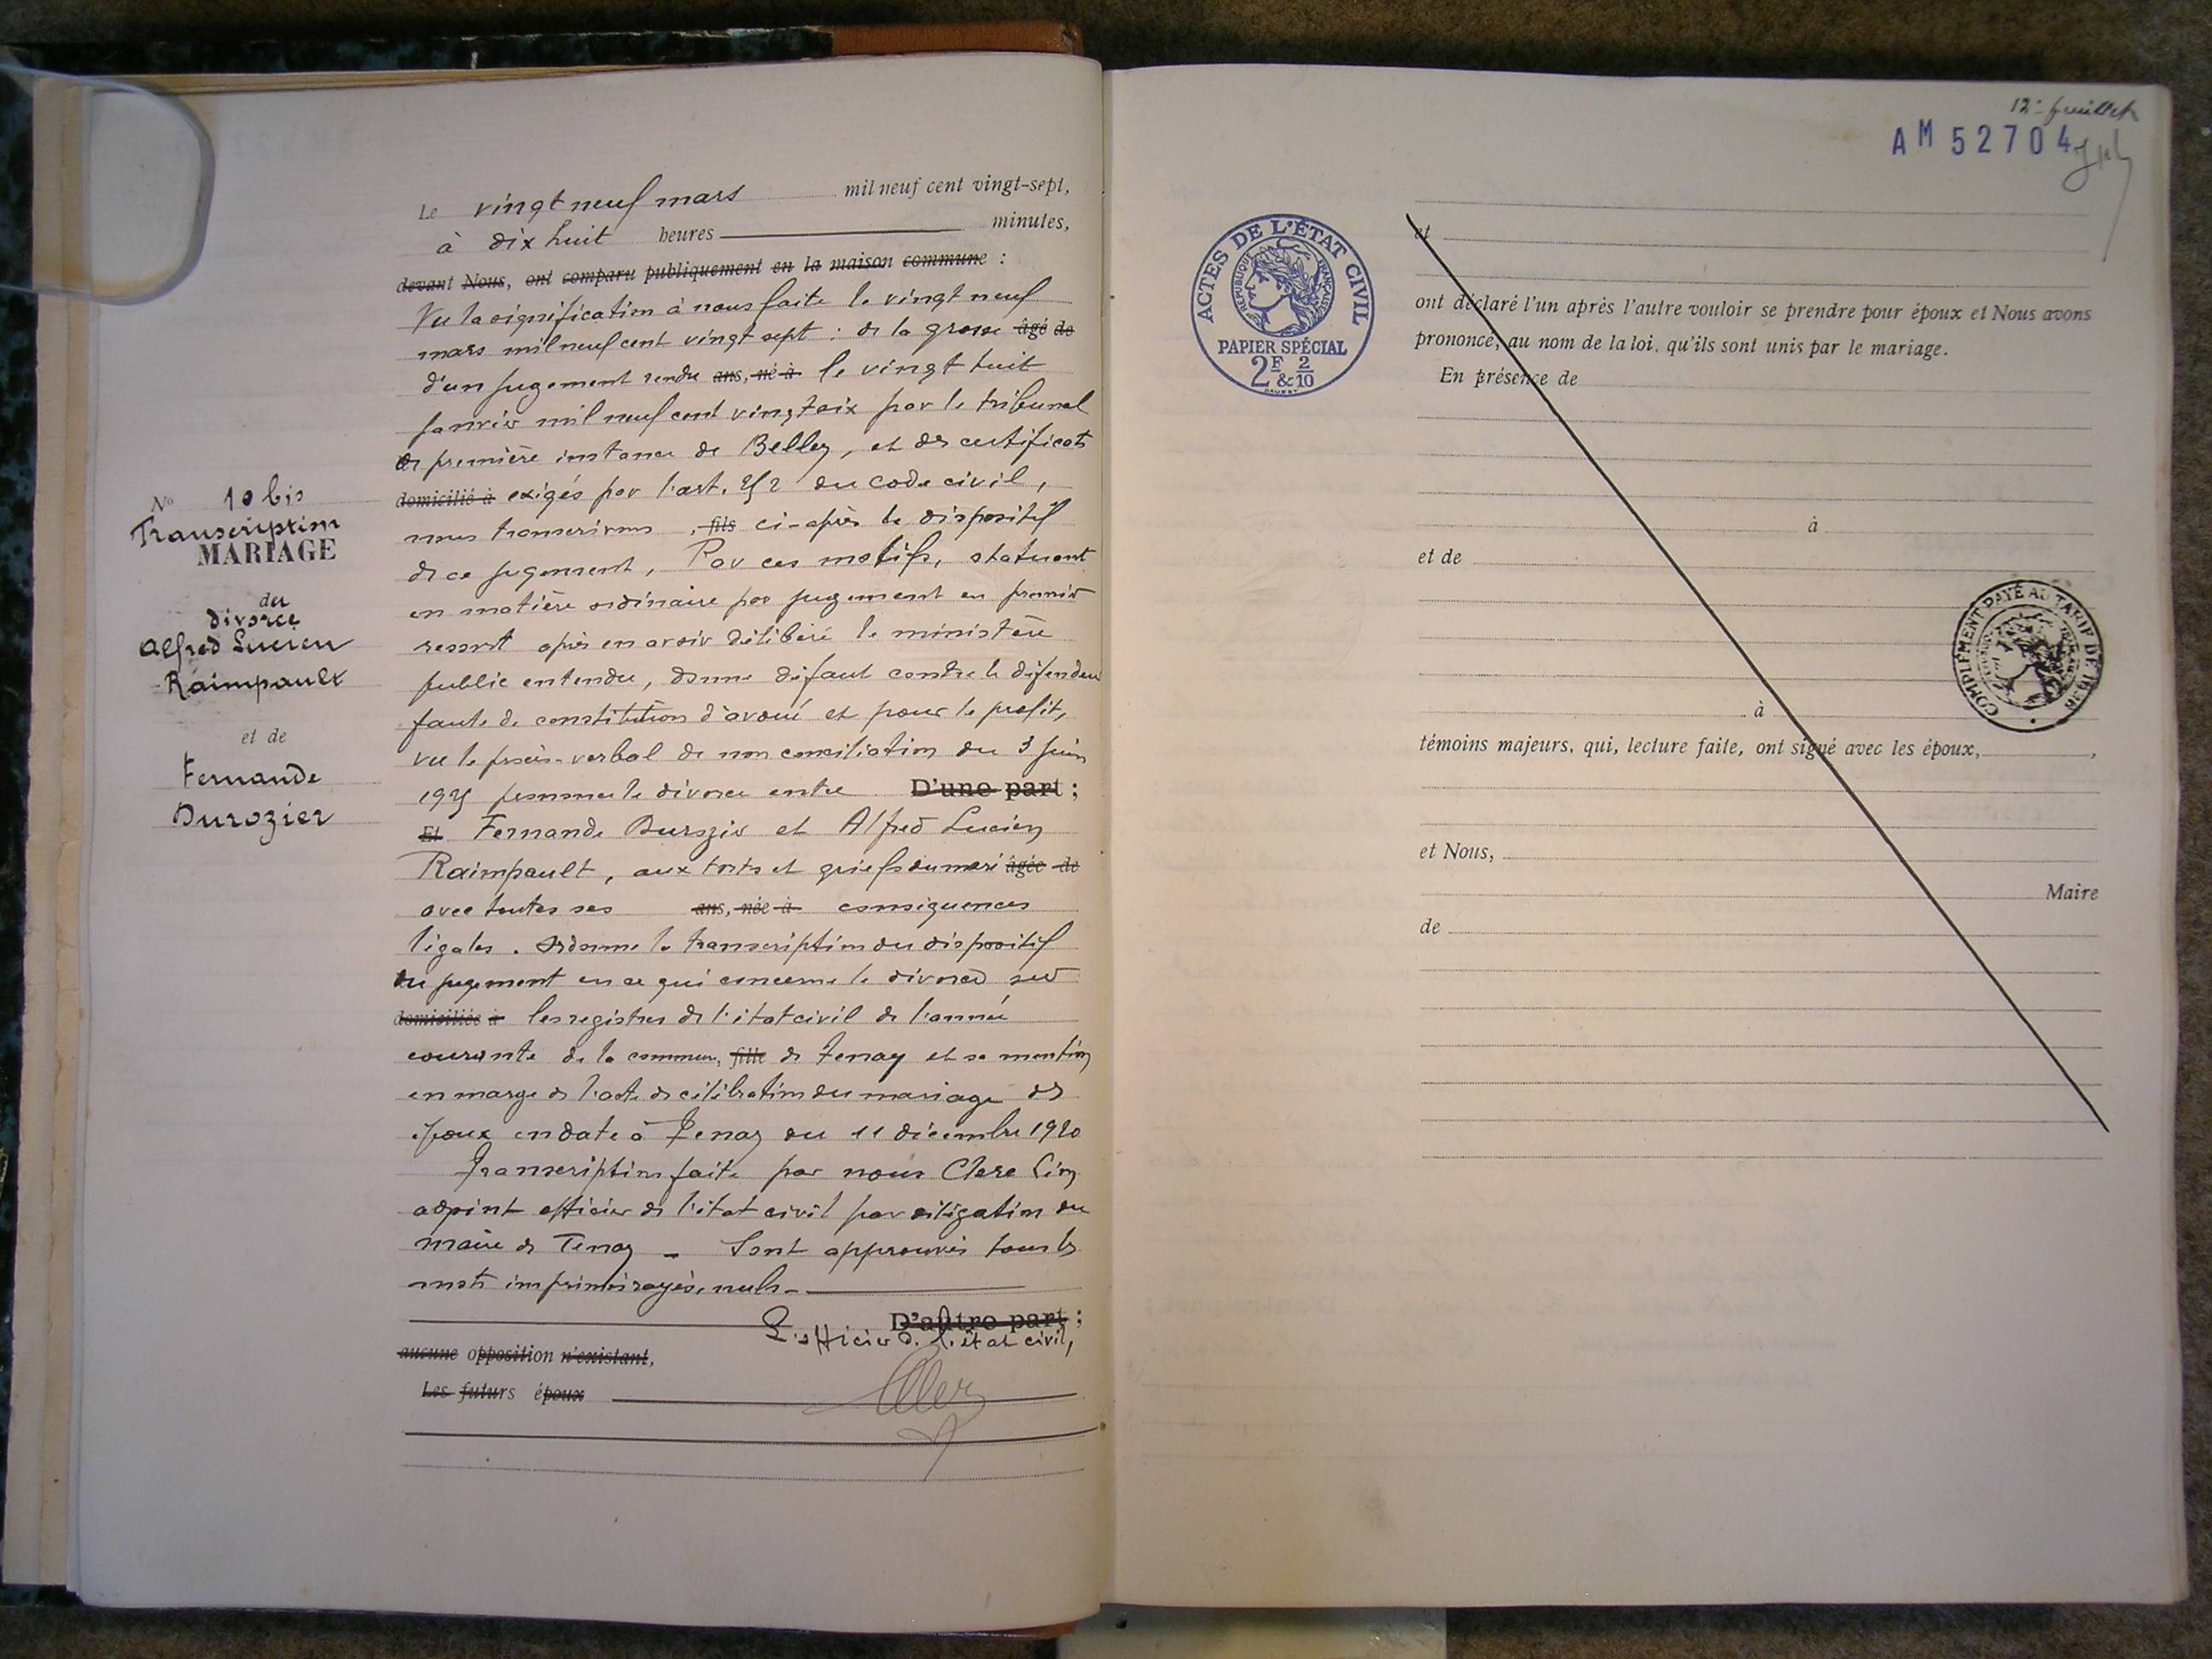 Le vingt neuf mars mil neuf cent vingt-sept,
à dix huit heures minutes,
devant Nous, ont comparu publiquement en la maison commune :
Vu la signification à nous faite le vingt neuf
mars mil neuf cent vingt sept : de la grosse âgé de
d'un jugement rendu ans, né à le vingt huit
janvier mil neuf cent vingt six par le tribunal
de première instance de Belley, et des certificats
domicilié à exigés par l'art. 252 du code civil,
nous transcrivons , fils ci-après le dispositif
de ce jugement, Par ces motifs, statuant
en matière ordinaire par jugement en premier
ressort après en avoir délibéré le ministère
public entendu, donne défaut contre le défendeur
faute de constitution d'avoué et pour le profit,
vu le procès-verbal de non conciliation du 3 juin
1925 prononce le divorce entre D'une part ;
Et Fernande Durozier et Alfred Lucien
Raimpault, aux torts et griefs du mari âgée de
avec toutes ses ans, née à conséquences
légales. Ordonne la transcription du dispositif
du jugement en ce qui concerne le divorce sur
domiciliée à les registres de l'état civil de l'année
courante de la commune, fille de Tenay et sa mention
en marge de l'acte de célébration du mariage des
époux en date à Tenay du 11 décembre 1920
Transcription faite par nous Clerc
adjoint officier de l'état civil par délégation du
maire de Tenay - Sont approuvés tous les
mots imprimés rayés, nuls -
D'autre part ;
L'officier de l'état civil,
aucune opposition n'existant,
Les futurs époux
No 10 bis
Transcription
MARIAGE
du
divorce
Alfred Lucien
Raimpault
et de
Fernande
Durozier
12e feuillet
AM 52704
ACTES DE L'ÉTAT CIVIL
RÉPUBLIQUE FRANÇAISE
PAPIER SPÉCIAL
2F & 2/10
et
ont déclaré l'un après l'autre vouloir se prendre pour époux et Nous avons
prononcé, au nom de la loi, qu'ils sont unis par le mariage.
En présence de
à
et de
COMPLÉMENT PAYÉ AU TARIF DE
à
témoins majeurs, qui, lecture faite, ont signé avec les époux, ,
et Nous,
Maire
de